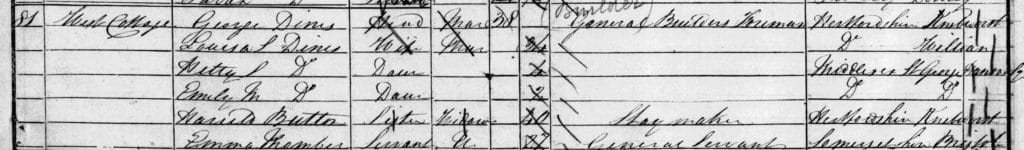 (Builder)
81 West Cottage George Dines Head Mar 38 General Builders Foreman Hertfordshire Knebworth
Louisa S Dines Wife Mar Do Willian
Hetty S Do Daur 4 Middlesex St George Hanover Sq
Emily M Do Daur 2 Do Do
Harriet Button Sister Widow 40 Stay maker Hertfordshire Knebworth
Emma Servant U 27 General Servant Somersetshire Bristol